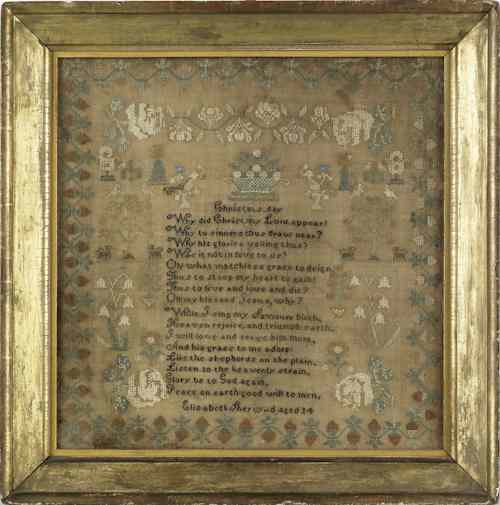 Christmas day
Why did Christ my Lord appear?
Why to sinners thus draw near?
Why his glories vailing thus?
Was it not in love to us?
Oh what matchless grace to deign,
Thus to stoop my heart to gain!
Thus to live and love and die?
Oh my blessed Jesus, why?
While I sing my Saviours birth,
Heaven rejoice, and triumph earth,
I will love and serve him more,
And his grace to me adore:
Like the shepherds on the plain,
Listen to the heavenly strain,
Glory be to God again,
Peace on earth good will to men,
Elizabeth aged 14